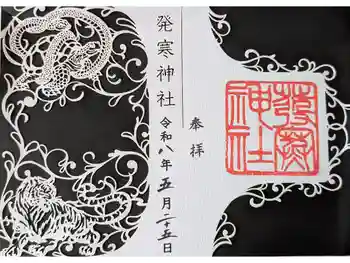 奉拝
発寒神社
令和八年五月二十五日